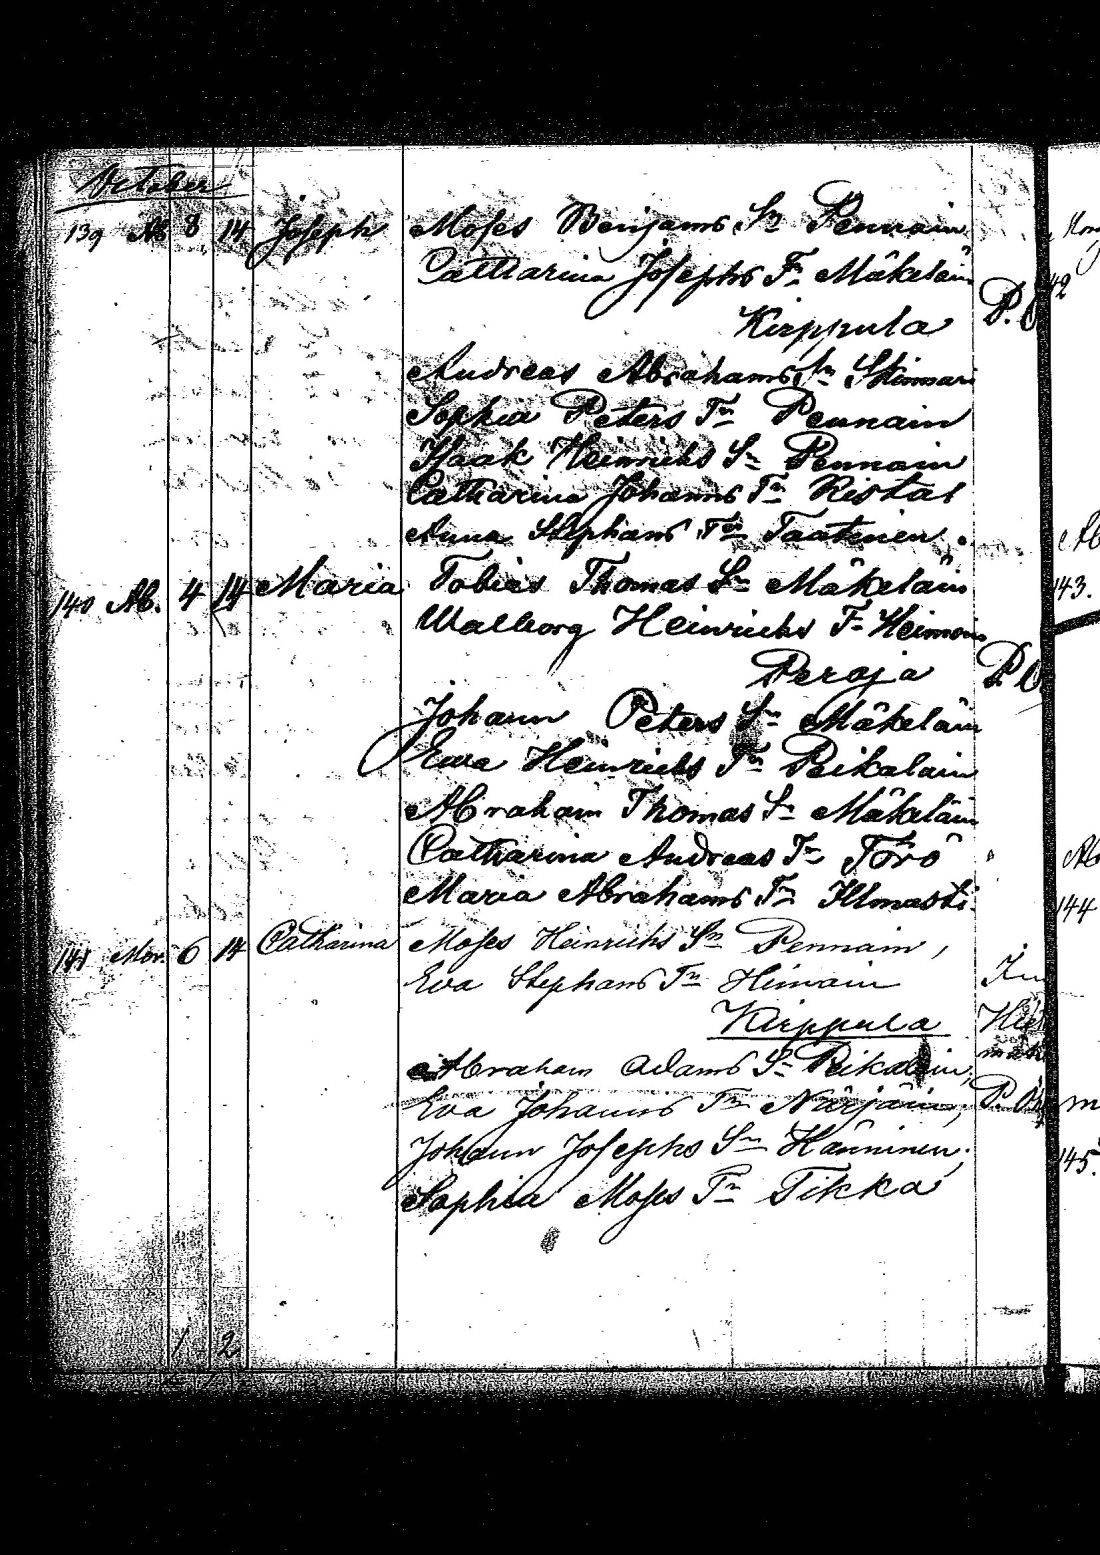 October
139 Ab 8 14 Joseph Moses Benjams Sn Pennain
Catharina Josephs Tn Mäkeläin
Kirppula P.
Andreas Abrahams Sn Skinnari
Sophia Peters Tn Pennain
Isaak Heinrichs Sn Pennain
Catharina Johanns Tn Ristai
Anna Stephans Tn Taatinen
140 Ab. 4 14 Maria Tobias Thomas Sn Mäkeläin
Walborg Heinrichs Tn
Peraja P
Johann Peters Sn Mäkeläin
Ewa Heinrichs Tn Peikalain
Abraham Thomas Sn Mäkeläin
Catharina Andreas Tn Törö
Maria Abrahams Tn Ilmasti
141 Mor. 6 14 Catharina Moses Heinrichs Sn Pennain,
Eva Stephans Tn Himain
Kirppula
Abraham Adams Sn Peikalain,
Eva Johanns Tn Närjäin, P.
Johann Josephs Sn Hänninen.
Sophia Moses Tn Tikka
1 2
42
143.
144
145.